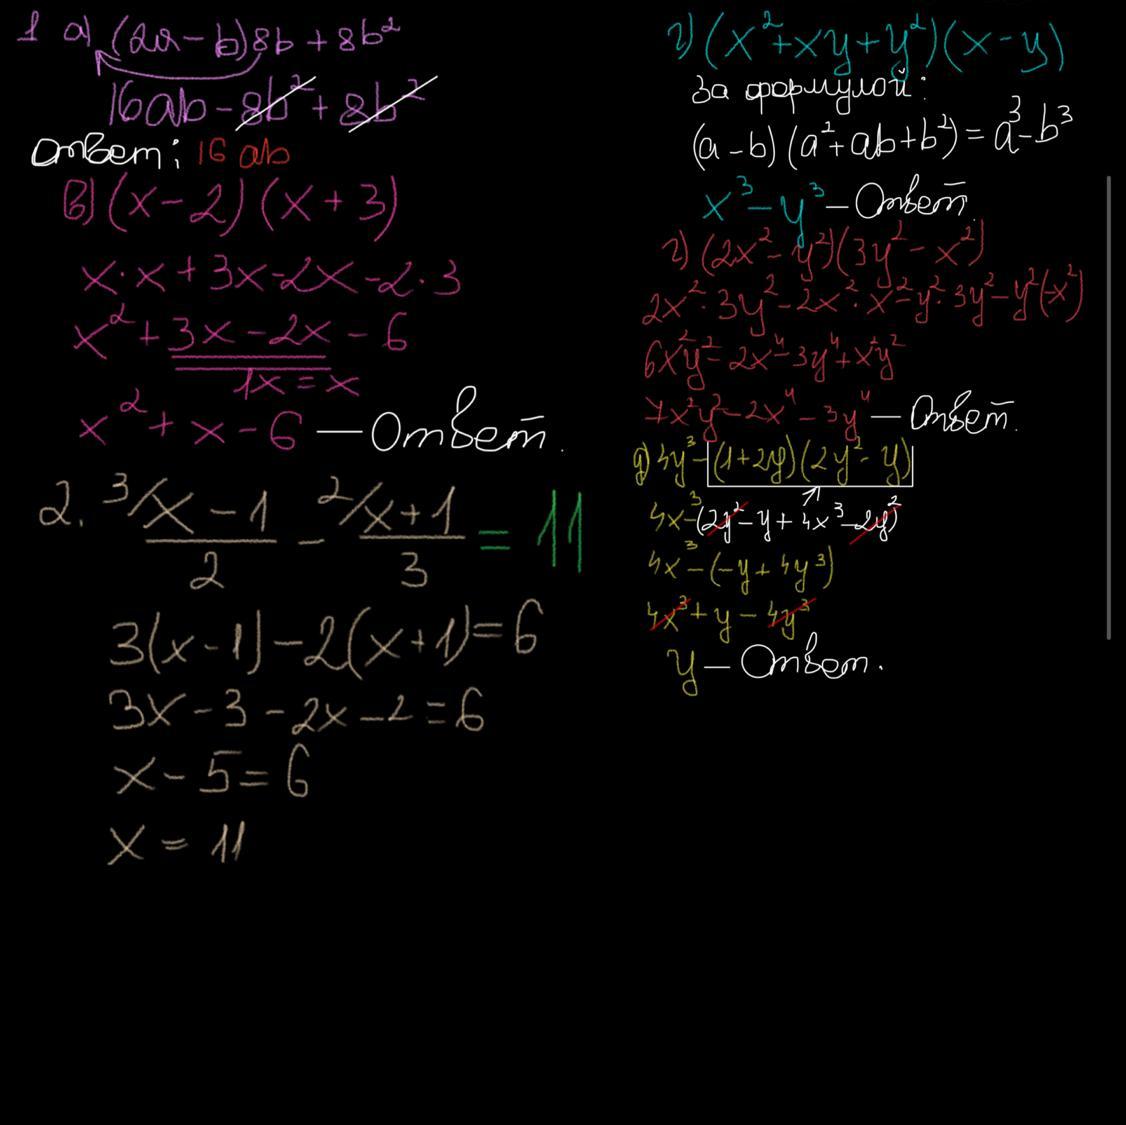 1 а) (2a-b)8b+8b²
16ab-8b²+8b²
Ответ: 16ab
в) (x-2)(x+3)
x·x+3x-2x-2·3
x²+3x-2x-6
1x=x
x²+x-6 — Ответ.
2. ³/x-1/2 - ²/x+1/3 = 11
3(x-1)-2(x+1)=6
3x-3-2x-2=6
x-5=6
x=11
г) (x²+xy+y²)(x-y)
За формулой:
(a-b)(a²+ab+b²)=a³-b³
x³-y³ — Ответ.
г) (2x²-y²)(3y²-x²)
2x²·3y²-2x²·x²-y²·3y²-y²(-x²)
6x²y²-2x⁴-3y⁴+x²y²
7x²y²-2x⁴-3y⁴ — Ответ.
д) 4y³-(1+2y)(2y²-y)
4x³-(2y²-y+4x³-2y²)
4x³-(-y+4y³)
4x³+y-4y³
y — Ответ.